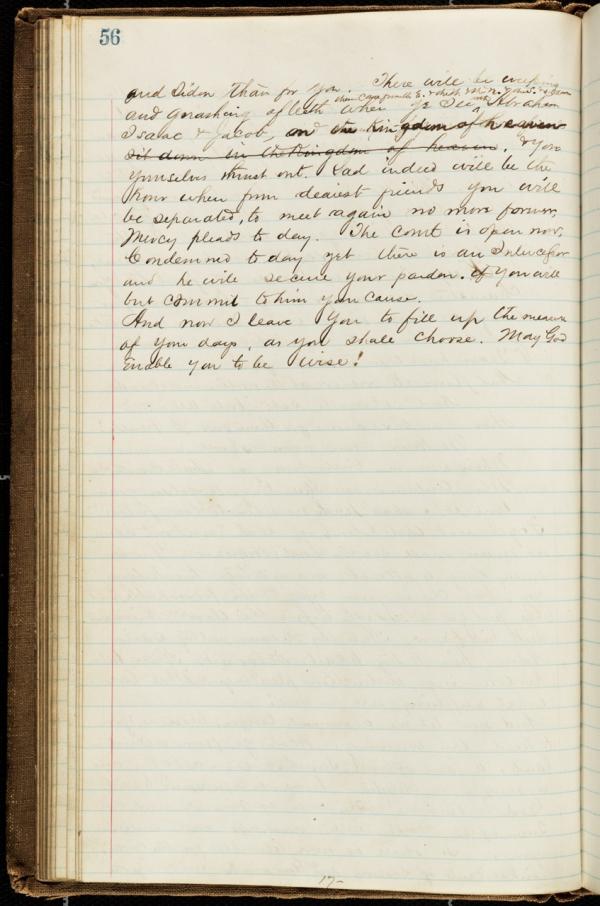 56
and Sidon than for you. There will be weeping
them come from the E. & the W. & N. & S. & down
and gnashing of teeth when ye see Abraham
Isaac & Jacob, and the Kingdom of heaven
sit down in the Kingdom of heaven. & you
yourselves thrust out. Sad indeed will be the
hour when from dearest friends you will
be separated, to meet again no more forever.
Mercy pleads to day. The Court is open now.
Condemned to day yet there is an Intercessor
and he will secure your pardon. If you will
but commit to him your cause.
And now I leave you to fill up the measure
of your days, as you shall choose. May God
enable you to be wise!
17-